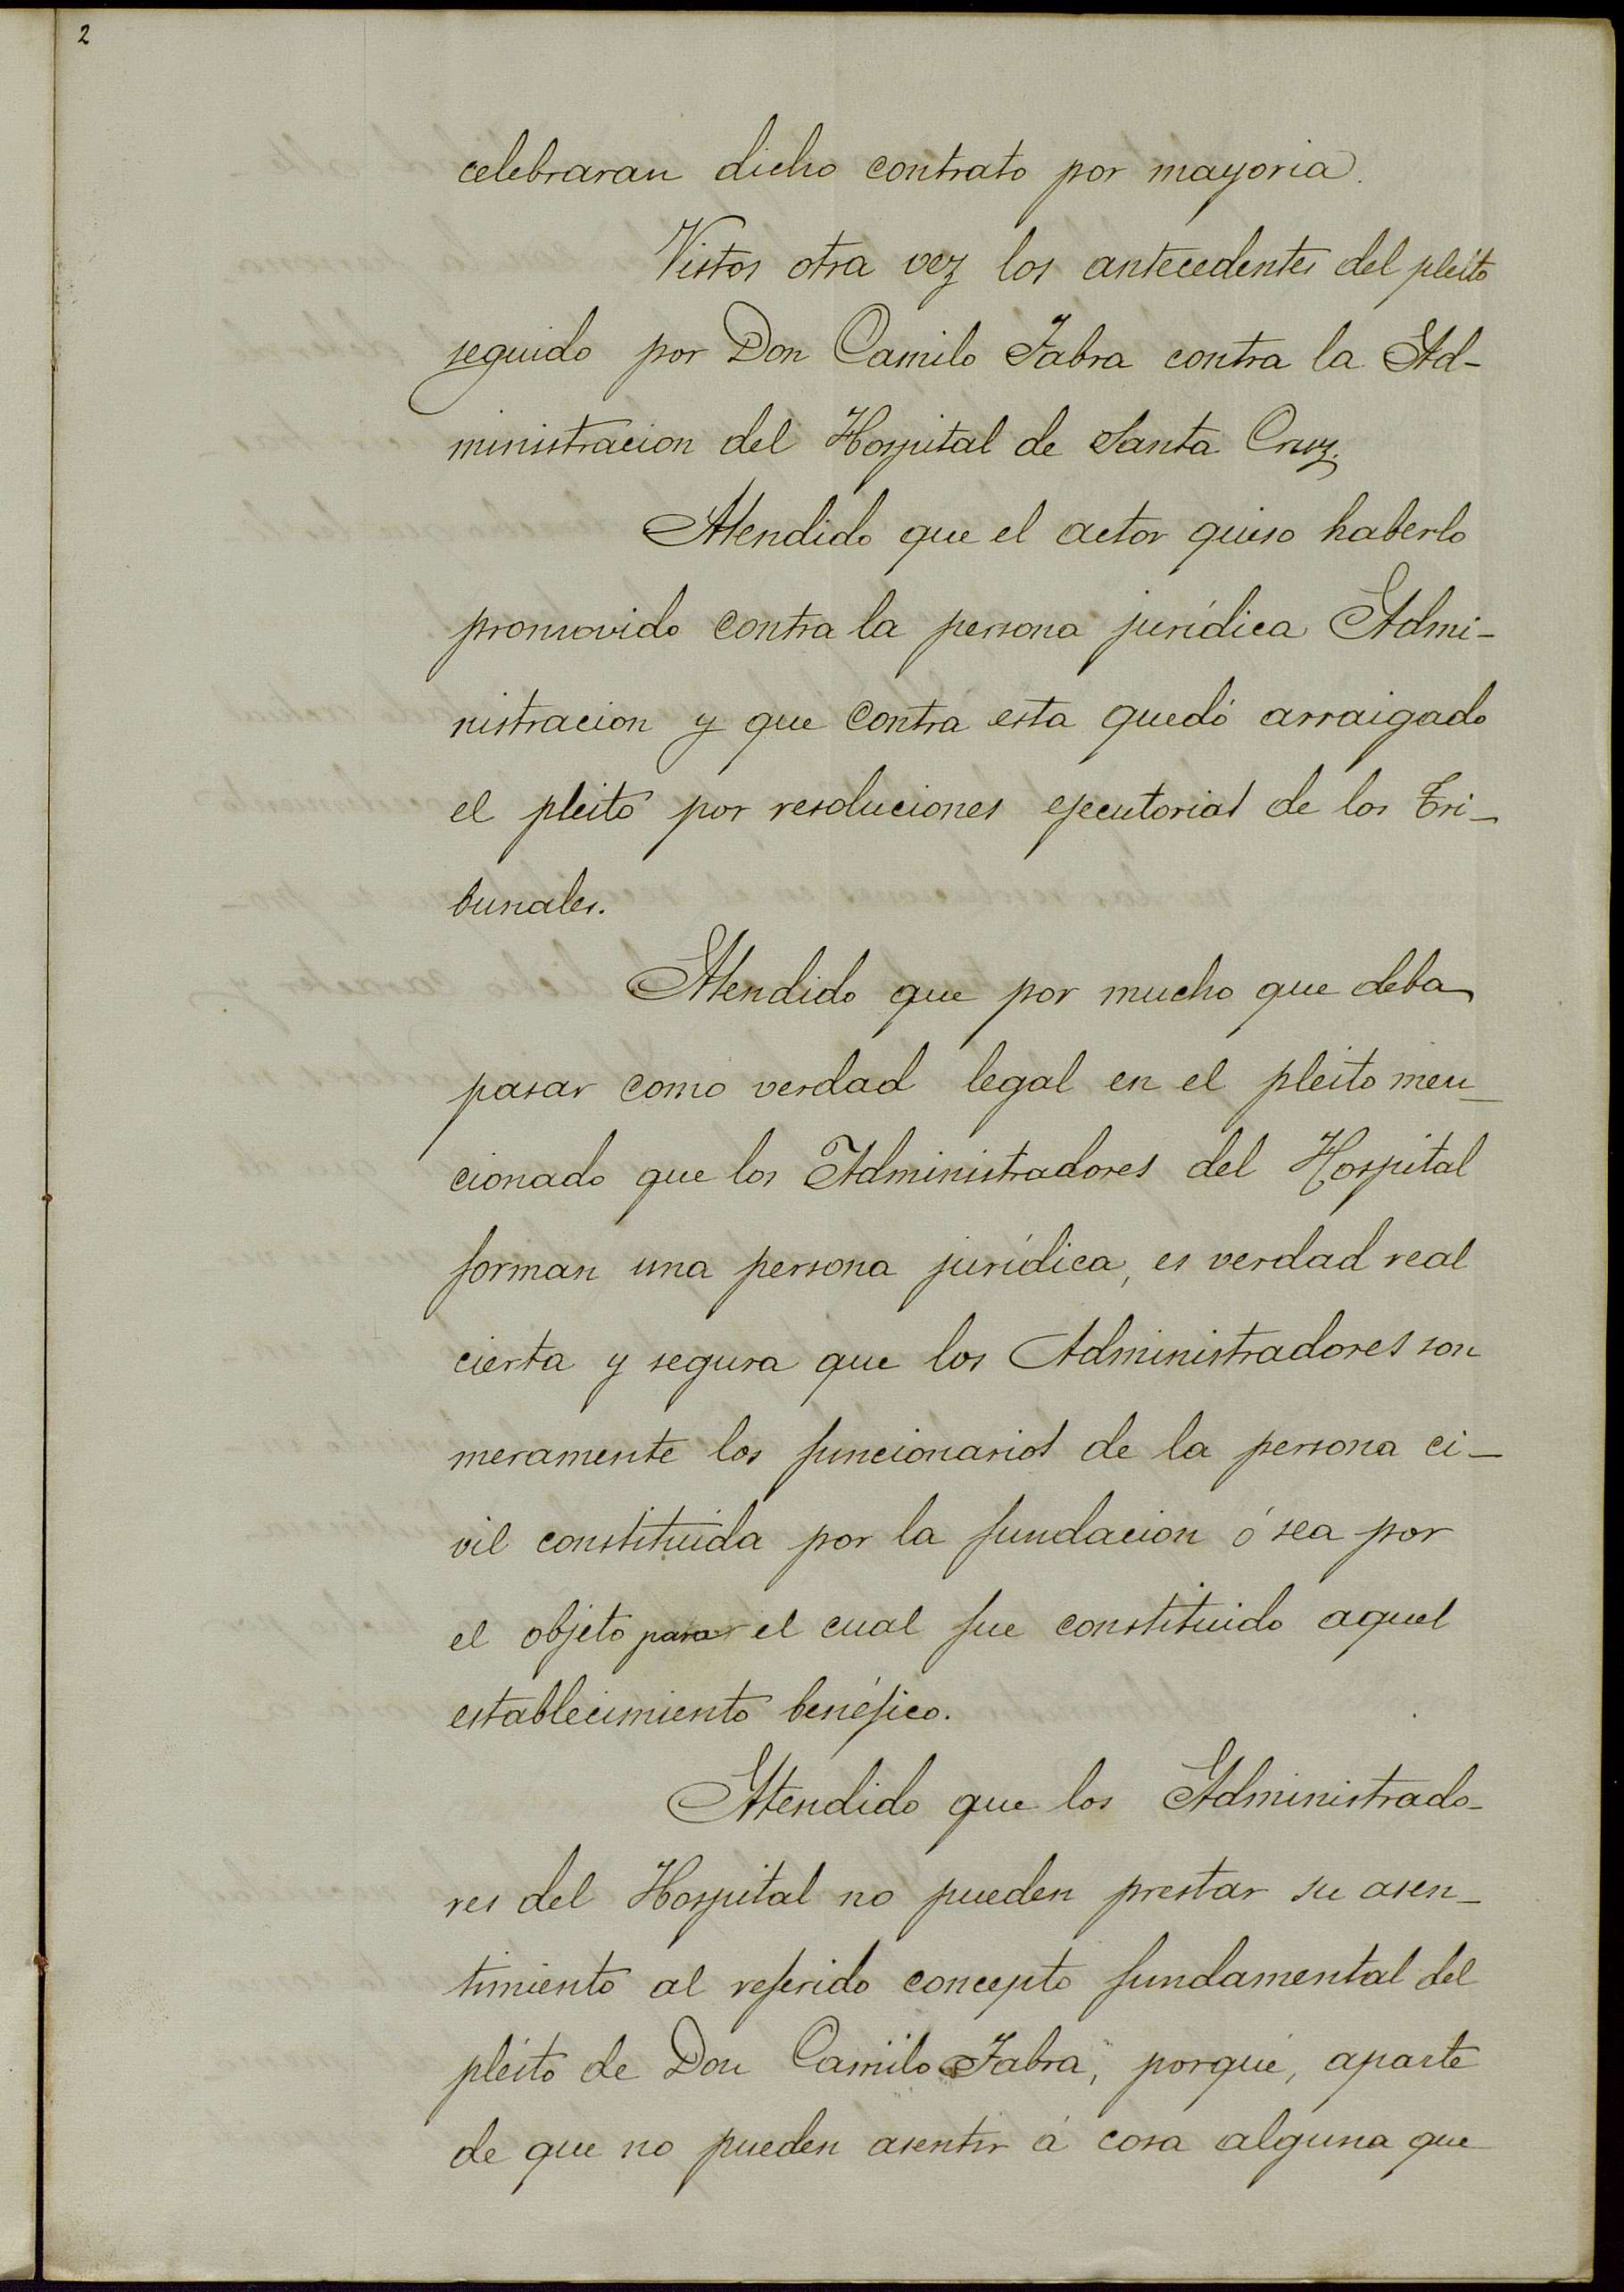 2
celebraran dicho contrato por mayoria.
Vistos otra vez los antecedentes del pleito
seguido por Don Camilo Fabra contra la Ad-
ministracion del Hospital de Santa Cruz.
Atendido que el actor quiso haberlo
promovido contra la persona jurídica Admi-
nistracion y que contra esta quedó arraigado
el pleito por resoluciones ejecutorias de los Tri-
bunales.
Atendido que por mucho que deba
pasar como verdad legal en el pleito men-
cionado que los Administradores del Hospital
forman una persona jurídica, es verdad real
cierta y segura que los Administradores son
meramente los funcionarios de la persona ci-
vil constituida por la fundacion ó sea por
el objeto para el cual fue constituido aquel
establecimiento benéfico.
Atendido que los Administrado-
res del Hospital no pueden prestar su asen-
timiento al referido concepto fundamental del
pleito de Don Camilo Fabra, porque, aparte
de que no pueden asentir á cosa alguna que